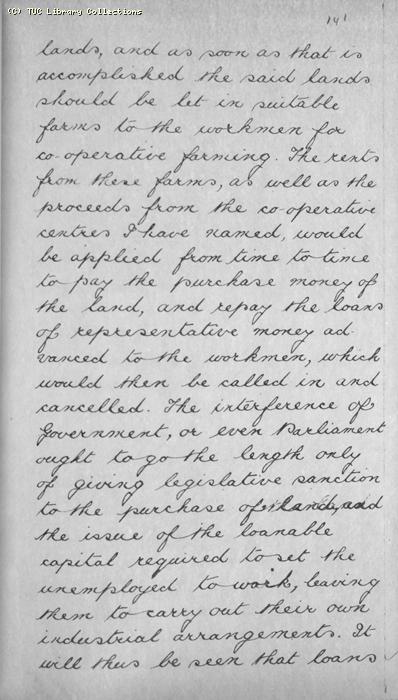 (C) TUC Library Collections
141
lands, and as soon as that is
accomplished the said lands
should be let in suitable
farms to the workmen for
co-operative farming. The rents
from these farms, as well as the
proceeds from the co-operative
centres I have named, would
be applied from time to time
to pay the purchase money of
the land, and repay the loans
of representative money ad-
vanced to the workmen, which
would then be called in and
cancelled. The interference of
Government, or even Parliament
ought to go the length only
of giving legislative sanction
to the purchase of land, and
the issue of the loanable
capital required to set the
unemployed to work, leaving
them to carry out their own
industrial arrangements. It
will thus be seen that loans